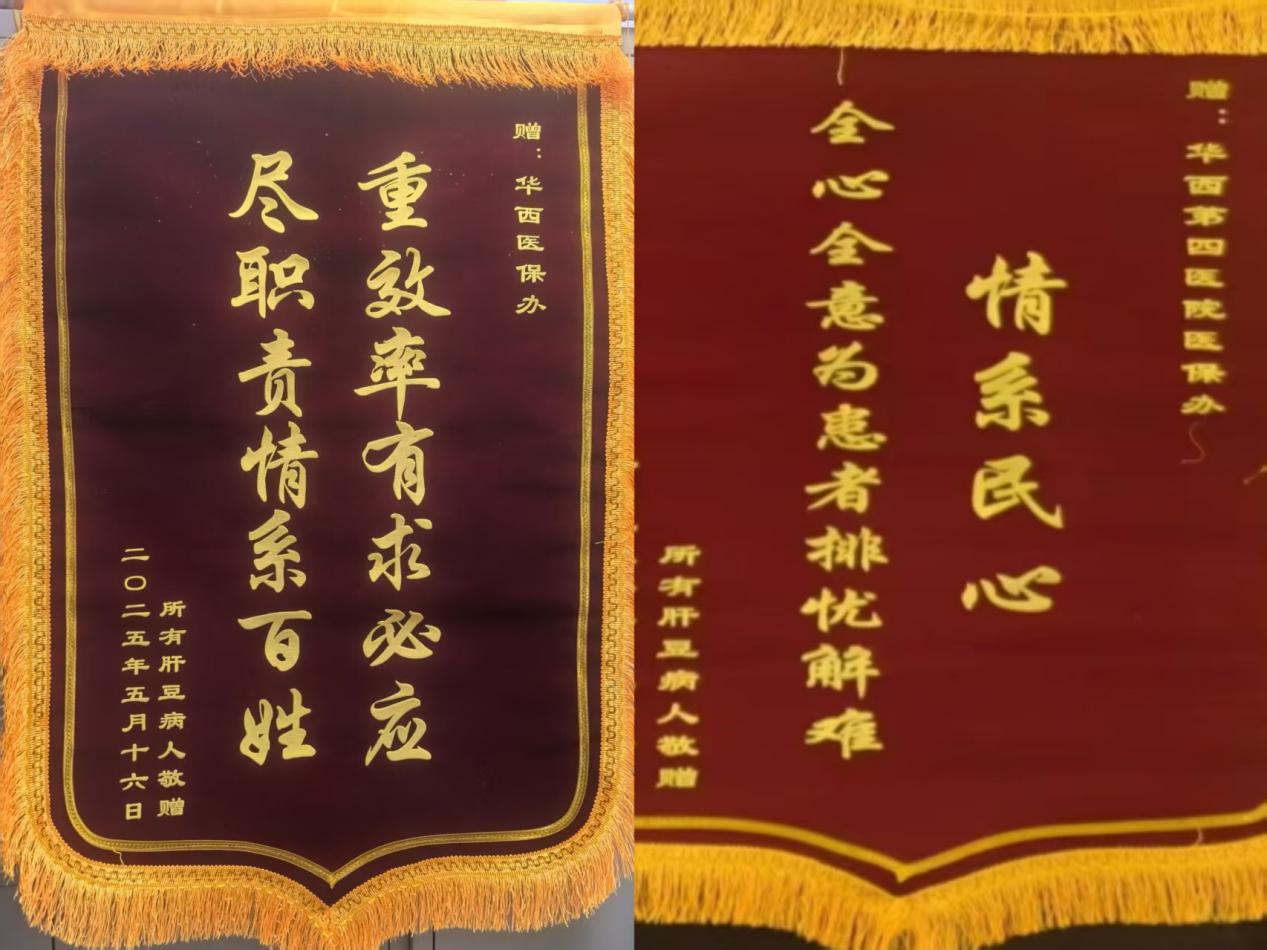 赠：华西医保办
重效率有求必应
尽职责情系百姓
所有肝豆病人敬赠
二〇二五年五月十六日
赠：华西第四医院医保办
情系民心
全心全意为患者排忧解难
所有肝豆病人敬赠